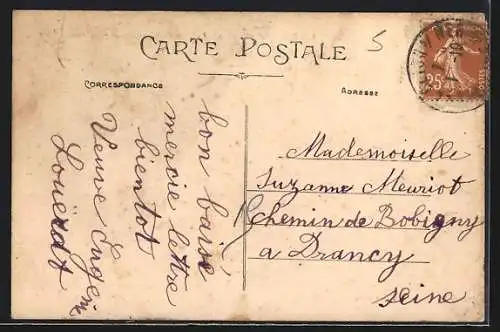 CARTE POSTALE
5
CORRESPONDANCE
ADRESSE
bon baisé
mercie lettre
bientot
Veuve Eugenie
Mademoiselle
Suzanne Meuriot
Chemin de Bobigny
a Drancy
Seine
25
POSTES